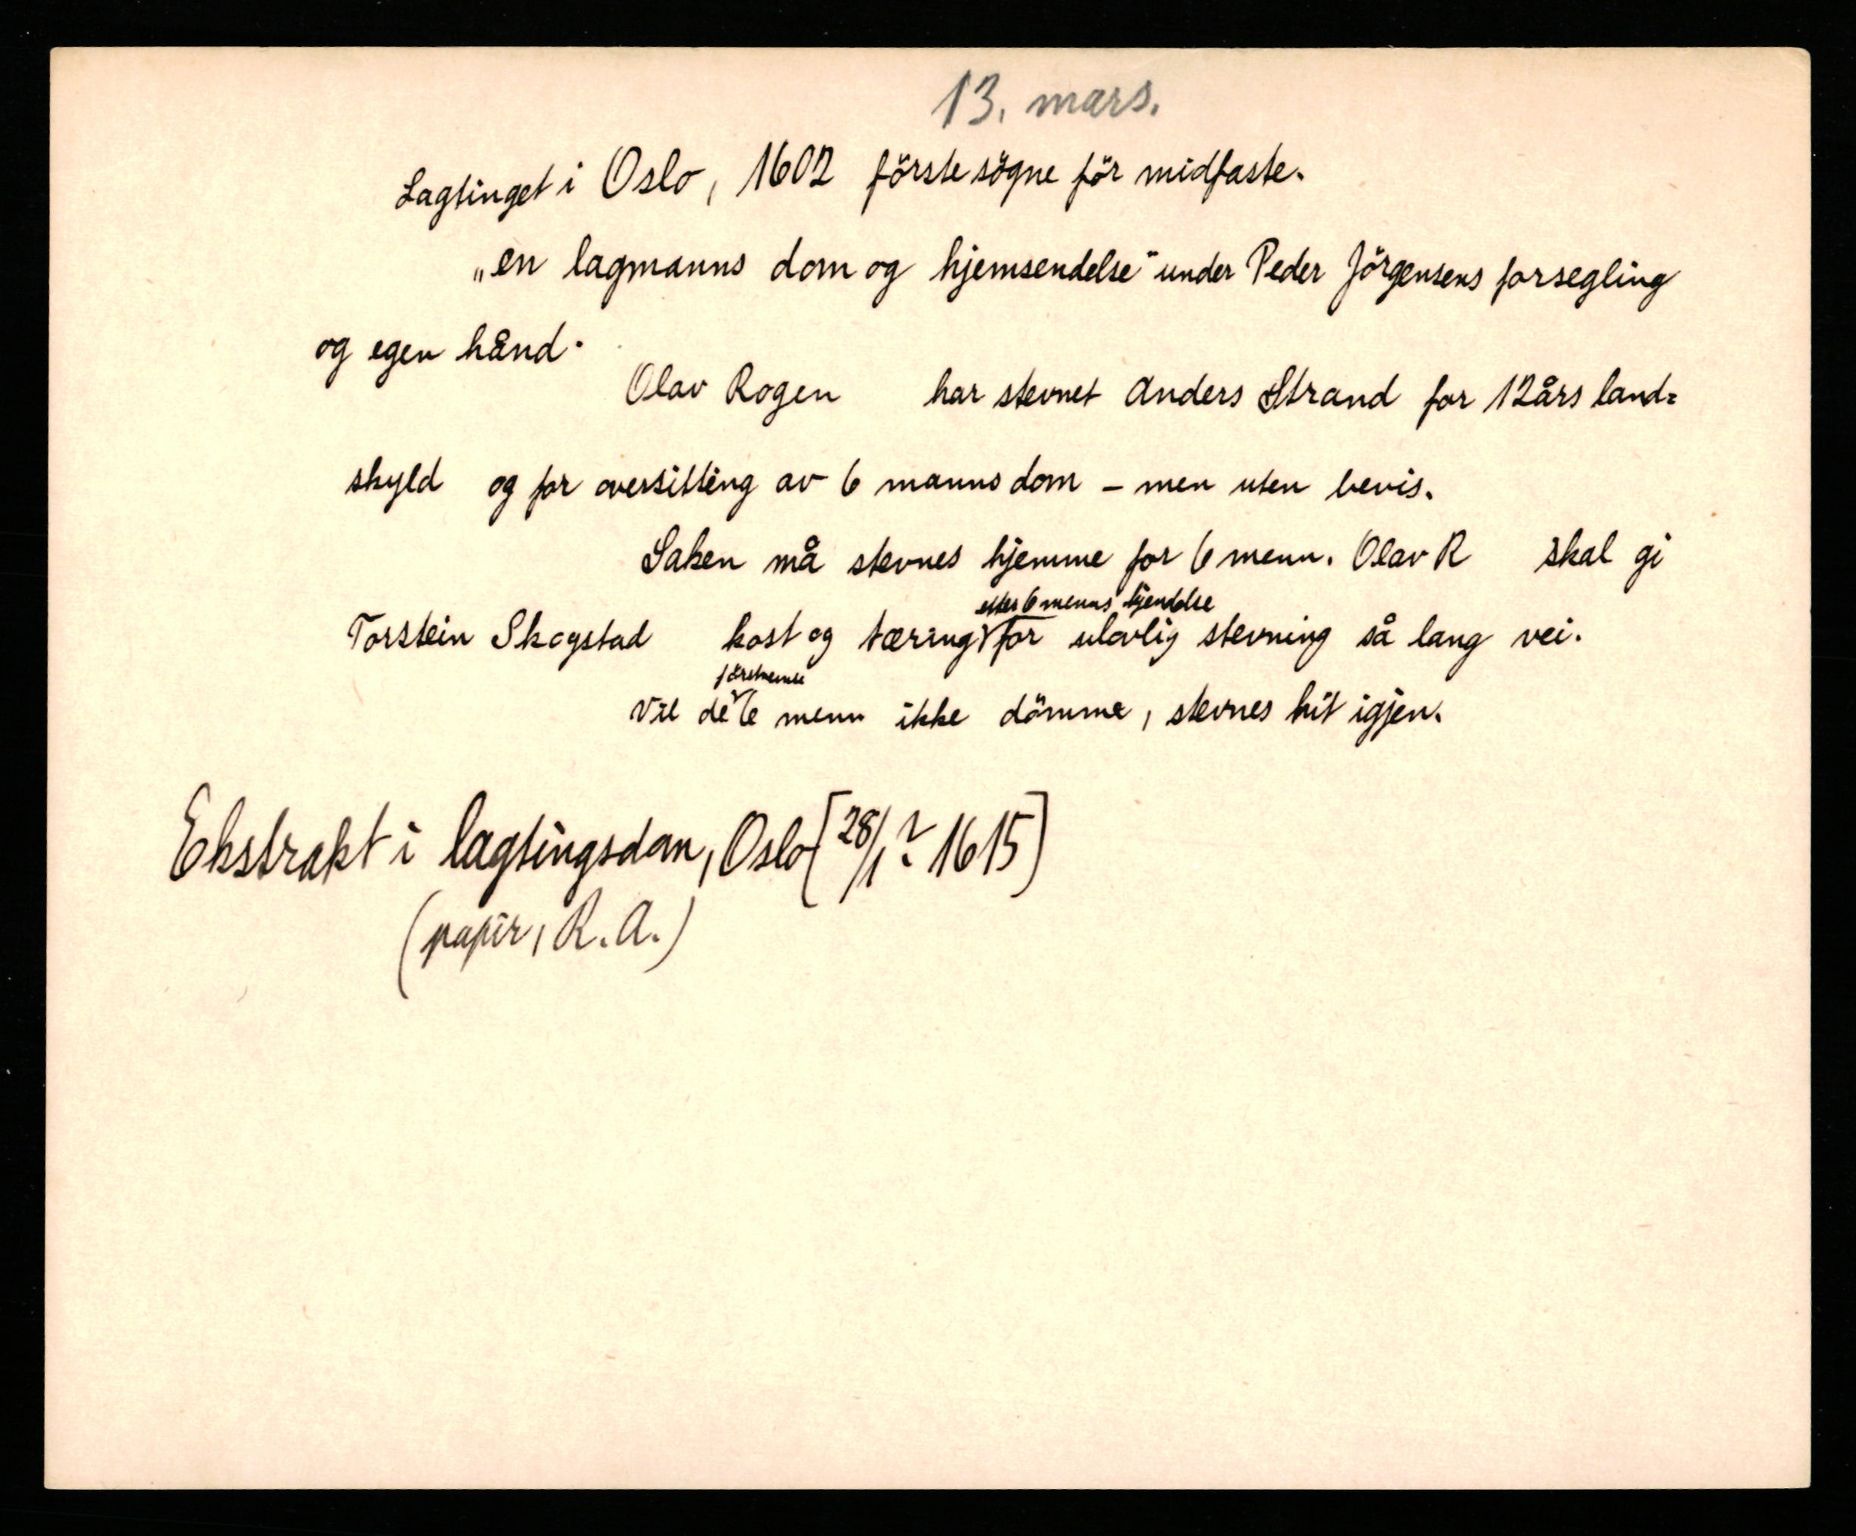 13. mars.
Lagtinget i Oslo, 1602 förste sögne för midfaste.
„en lagmanns dom og hjemsendelse" under Peder Jörgensens forsegling
og egen hånd.
Olav Rogen har stevnet Anders Strand for 12 års land=
skyld og for oversitting av 6 manns dom – men uten bevis.
Saken må stevnes hjemme for 6 menn. Olav R skal gi
etter 6 menns kjendelse
Torstein Skogstad kost og tæring for ulovlig stevning så lang vei.
förstnevnte
Vil de 6 menn ikke dömme, stevnes hit igjen.
Ekstrakt i lagtingsdom, Oslo [28/1? 1615]
(papir, R.A.)